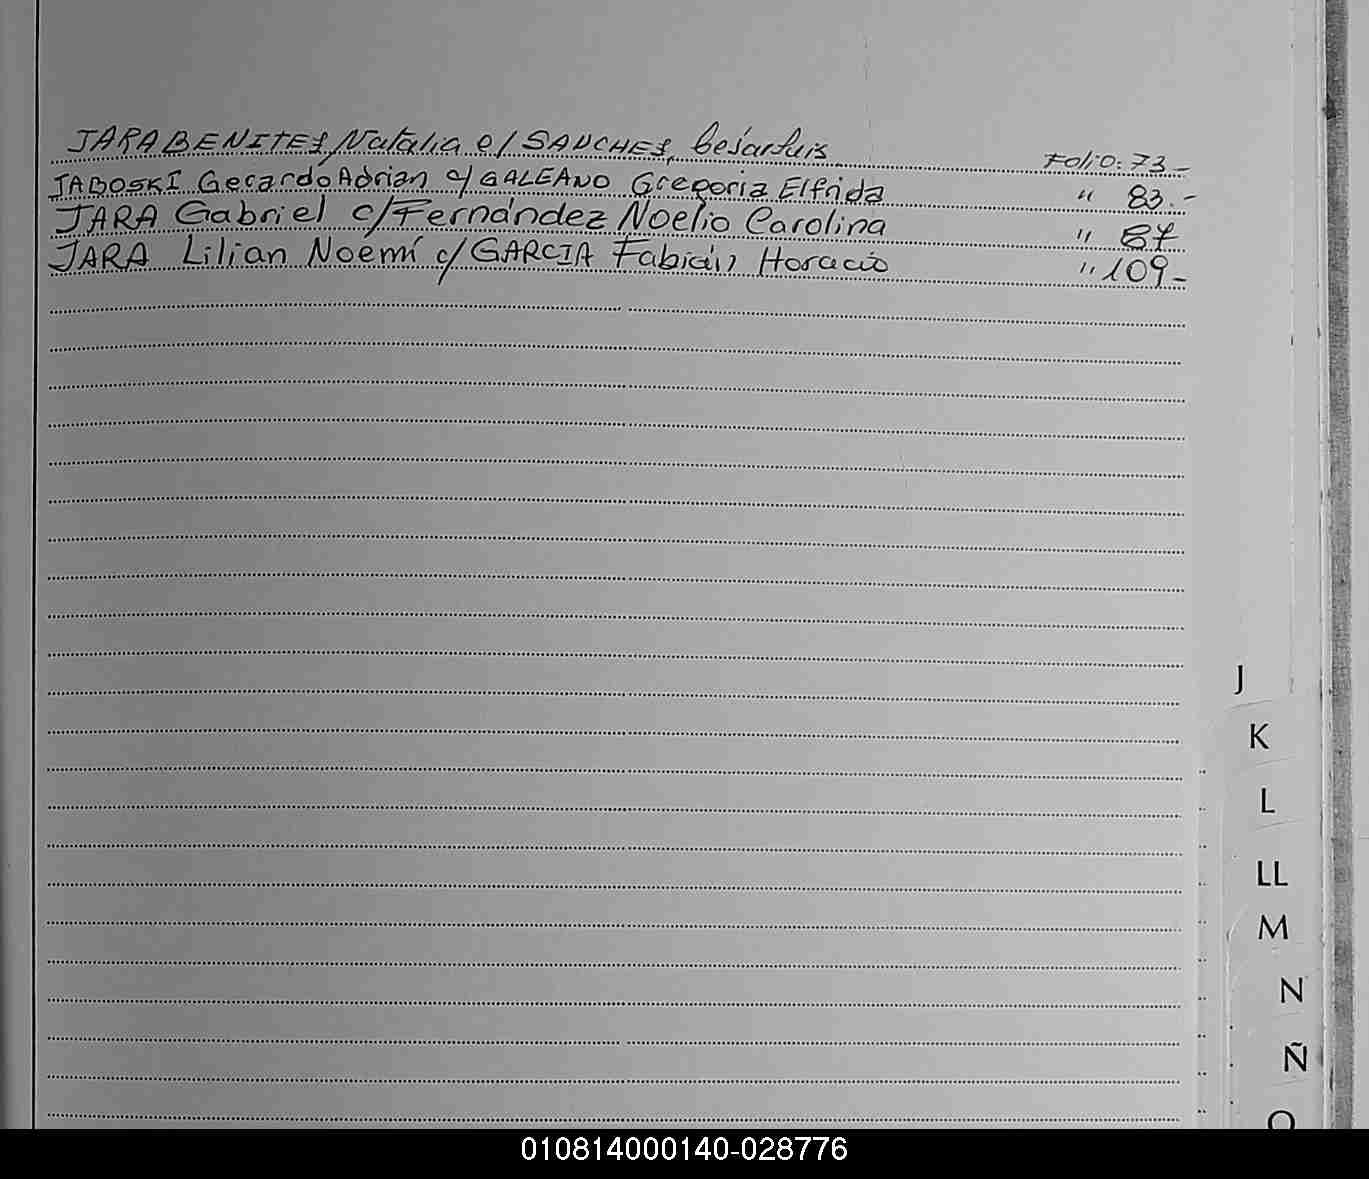 JARA BENITES, Natalia c/ SANCHES, Cesar Luis Folio: 73.-
JABOSKI Gerardo Adrian c/ GALEANO Gregoria Elfrida " 83.-
JARA Gabriel c/ Fernández Noelio Carolina " 87
JARA Lilian Noemí c/ GARCIA Fabián Horacio " 109-
J
K
L
LL
M
N
Ñ
O
010814000140-028776